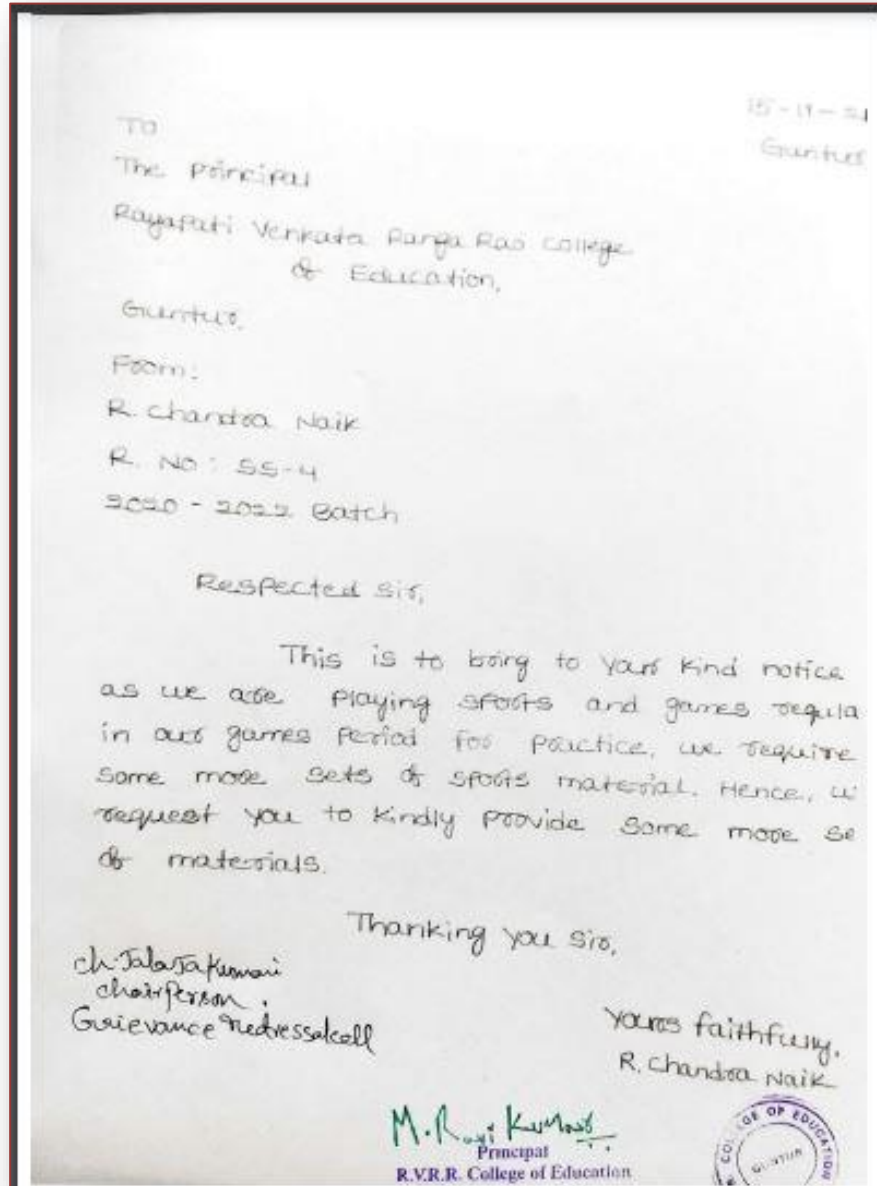 15-11-21
Guntur
To
The Principal
Rayapati Venkata Ranga Rao College
of Education,
Guntur.
From:
R. Chandra Naik
R. No: SS-4
2020-2022 Batch
Respected Sir,
This is to bring to your kind notice
as we are playing sports and games regula
in our games period for practice, we require
some more sets of sports material. Hence, w
request you to kindly provide some more se
of materials.
Thanking you Sir,
Ch. Jalaja Kumari
Chairperson
Grievance redressal cell
Yours faithfully,
R. Chandra Naik
M. Ravi Kumar
Principal
R.V.R.R. College of Education
COLLEGE OF EDUCATION
GUNTUR